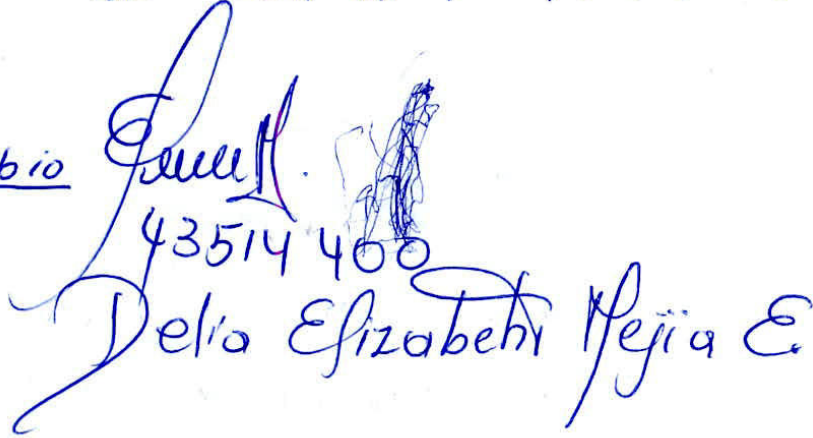 bio
43514 400
Delia Elizabeth Mejia E.